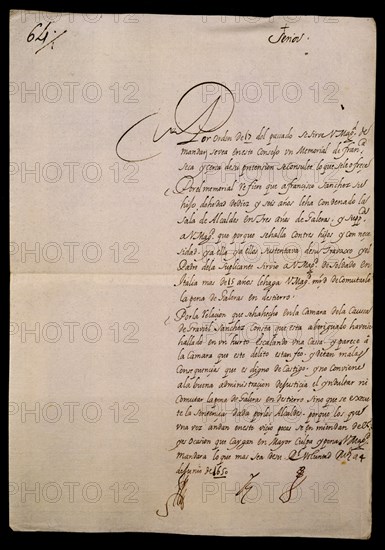 64
Señor.
Por orden de 17 del pasado se sirve V Magd. de
mandar se vea en este Consejo un Memorial de Fran.ca
y cerca de su pretension se consulte lo que se ofrece
Por el memorial refiere que a francisco Sanchez su
hijo de hedad de Diez y seis años le ha Condenado la
Sala de Alcaldes en Tres años de Galeras, y supp.ca
a V Magd. que porque se halla Con tres hijos y Con nece
sidad, y a ella y a ellos sustentava de su Travajo y el
Padre de la suplicante sirvio a V Magd. de soldado en
Italia mas de 15 años le haga V Magd. mrd de Comutarle
la pena de Galeras en destierro.
Por la Relaçion que se ha hecho en la Camara de la Caussa
de fran.co Sanchez Consta que esta averiguado haverse
hallado en un hurto escalando una Casa, y pareçe a
la Camara que este delito es tan feo, y de tan malas
Consequençias que es digno de Castigo, y no conviene
a la buena administraçion de Justiçia el yndultar ni
Comutar la pena de Galeras en destierro Sino que se execu
te la Sentençia dada por los Alcaldes, porque los que
una vez andan en este viçio pocas se enmiendan del
y es ocasion que Caygan en Mayor Culpa y pena V Magd.
Mandara lo que mas sea de su Rl Voluntad 14
de Junio de 1650